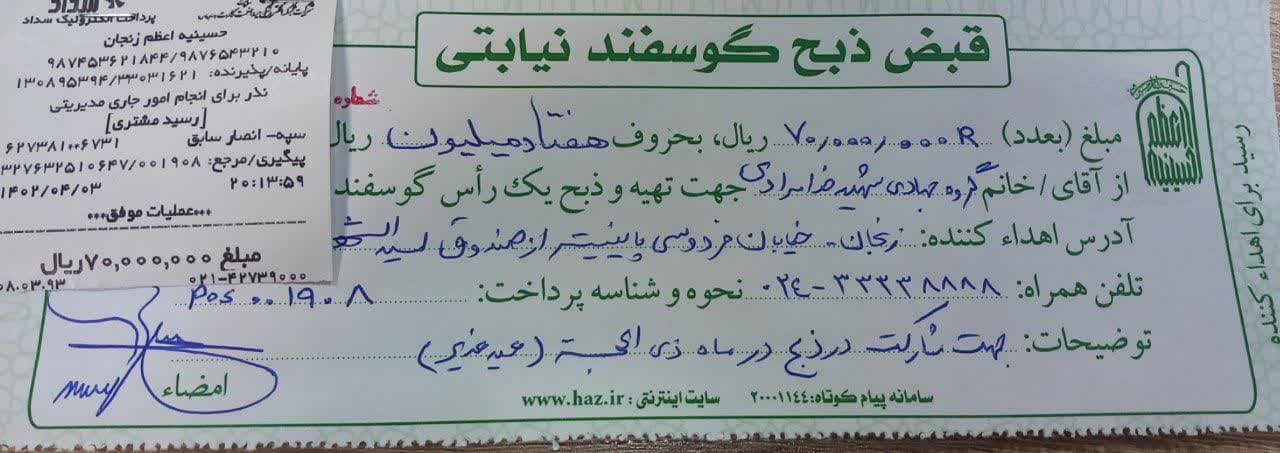 پرداخت الکترونیک سداد
حسینیه اعظم زنجان
۹۸۷۴۵۳۶۲۱۸۴۴/۹۸۷۶۵۴۳۲۱۰
پایانه/پذیرنده: ۱۳۰۸۹۵۳۹۴/۳۳۰۳۱۶۲۱
نذر برای انجام امور جاری مدیریتی
[رسید مشتری]
سپه- انصار سابق ۶۲۷۳۸۱۰۰۶۷۳۱
پیگیری/مرجع: ۳۲۷۶۳۲۵۱۰۶۴۷/۰۰۱۹۰۸
۱۴۰۲/۰۴/۰۳ ۲۰:۱۳:۵۹
***عملیات موفق***
مبلغ ۷۰,۰۰۰,۰۰۰ریال
۰۲۱-۴۲۷۳۹۰۰۰
قبض ذبح گوسفند نیابتی
شماره
حسینیه اعظم
مبلغ (بعدد) ۷۰,۰۰۰,۰۰۰R ریال، بحروف هفتاد میلیون ریال
از آقای/خانم گروه جهادی شهید خدامرادی جهت تهیه و ذبح یک رأس گوسفند
آدرس اهداء کننده: زنجان - خیابان فردوسی پایینتر از صندوق
تلفن همراه: ۰۲۴-۳۳۳۳۸۸۸۸ نحوه و شناسه پرداخت: Pos ۰۰۱۹۰۸
توضیحات: جهت شارکت در ذبح در ماه ذی الحجة (عید غدیر)
امضاء
سامانه پیام کوتاه: ۲۰۰۰۱۱۴۴ سایت اینترنتی: www.haz.ir
رسید برای اهداء کننده